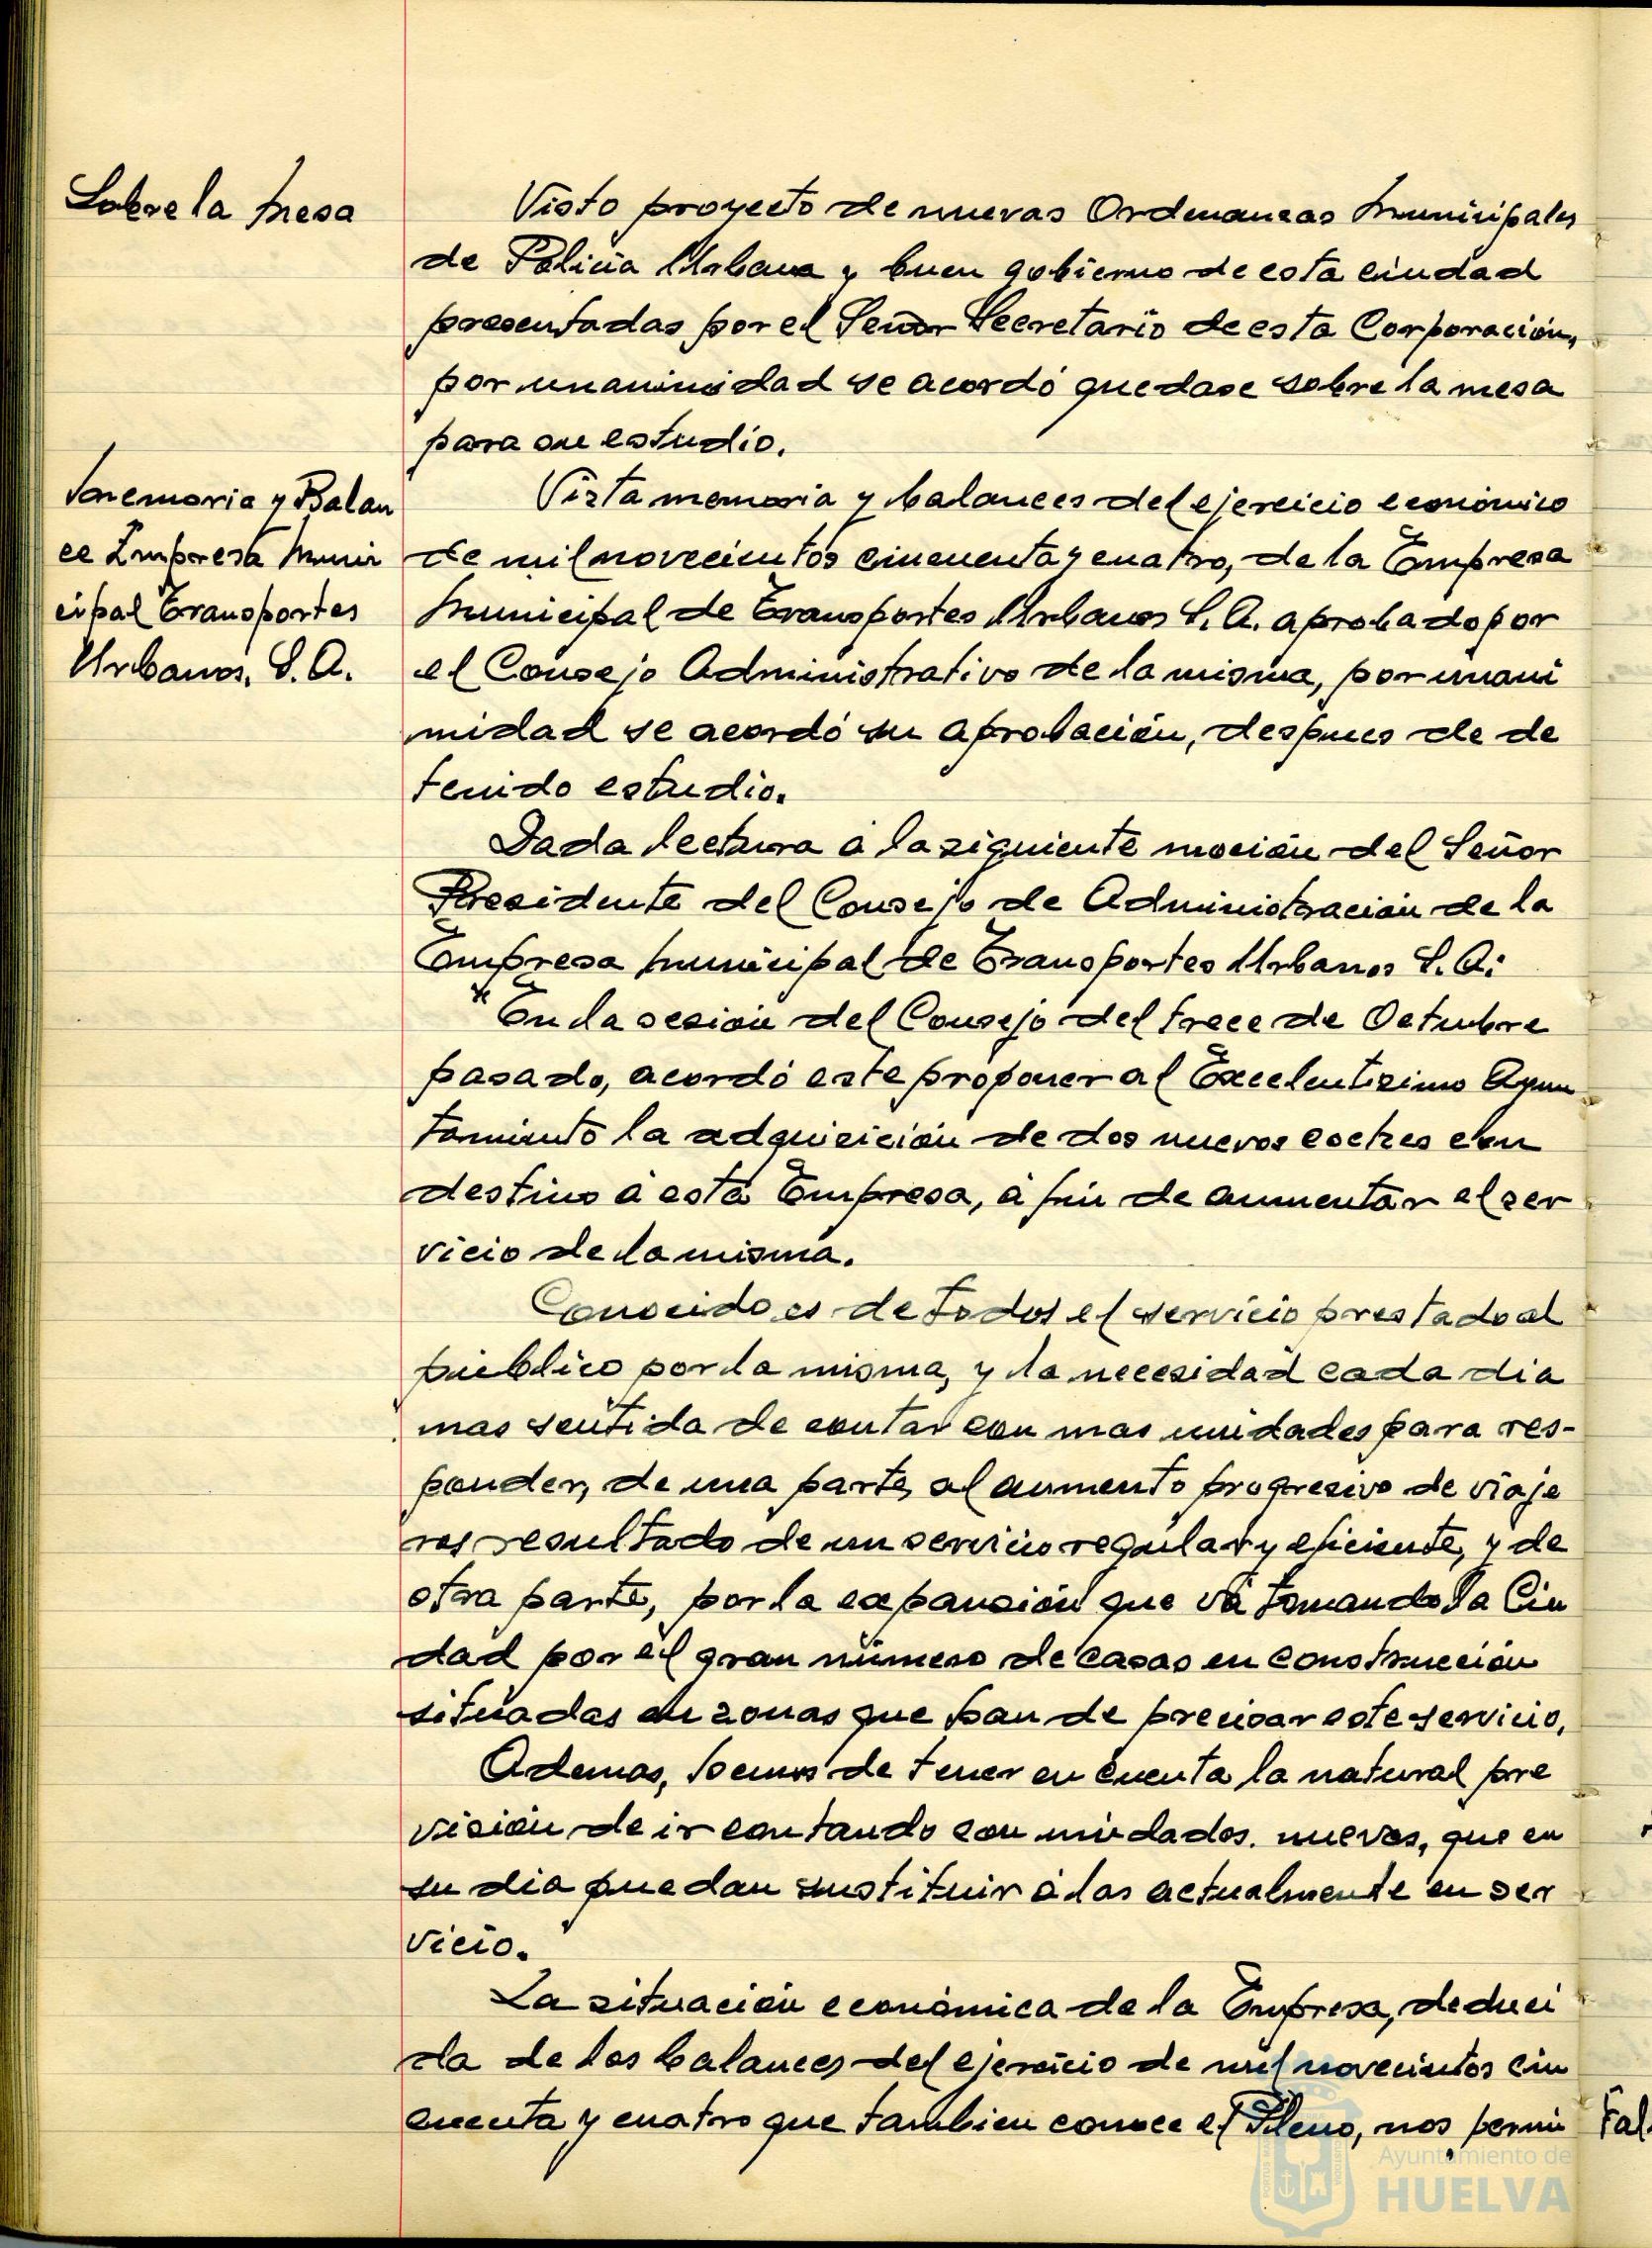 Sobre la mesa
Visto proyecto de nuevas Ordenanzas Municipales
de Policía Urbana y buen gobierno de esta ciudad
presentadas por el Señor Secretario de esta Corporación,
por unanimidad se acordó quedase sobre la mesa
para su estudio.
Memoria y Balan
ce Empresa Muni
cipal Transportes
Urbanos, S.A.
Vista memoria y balances del ejercicio económico
de mil novecientos cincuenta y cuatro, de la Empresa
Municipal de Transportes Urbanos S.A. aprobado por
el Consejo Administrativo de la misma, por unani
midad se acordó su aprobación, despues de de
tenido estudio.
Dada lectura á la siguiente moción del Señor
Presidente del Consejo de Administración de la
Empresa Municipal de Transportes Urbanos S.A:
"En la sesión del Consejo del trece de Octubre
pasado, acordó este proponer al Excelentisimo Ayun
tamiento la adquisición de dos nuevos coches con
destino á esta Empresa, á fin de aumentar el ser
vicio de la misma.
Conocido es de todos el servicio prestado al
público por la misma, y la necesidad cada dia
mas sentida de contar con mas unidades para res-
ponder, de una parte, al aumento progresivo de viaje
ros resultado de un servicio regular y eficiente, y de
otra parte, por la expansión que vá tomando la Ciu
dad por el gran número de casas en construcción
situadas en zonas que han de precisar este servicio.
Ademas, hemos de tener en cuenta la natural pre
visión de ir contando con unidades nuevas, que en
su dia puedan sustituir á las actualmente en ser
vicio.
La situación económica de la Empresa, deduci
da de los balances del ejercicio de mil novecientos cin
cuenta y cuatro que tambien conoce el Pleno, nos permi
Fal
Ayuntamiento de
HUELVA